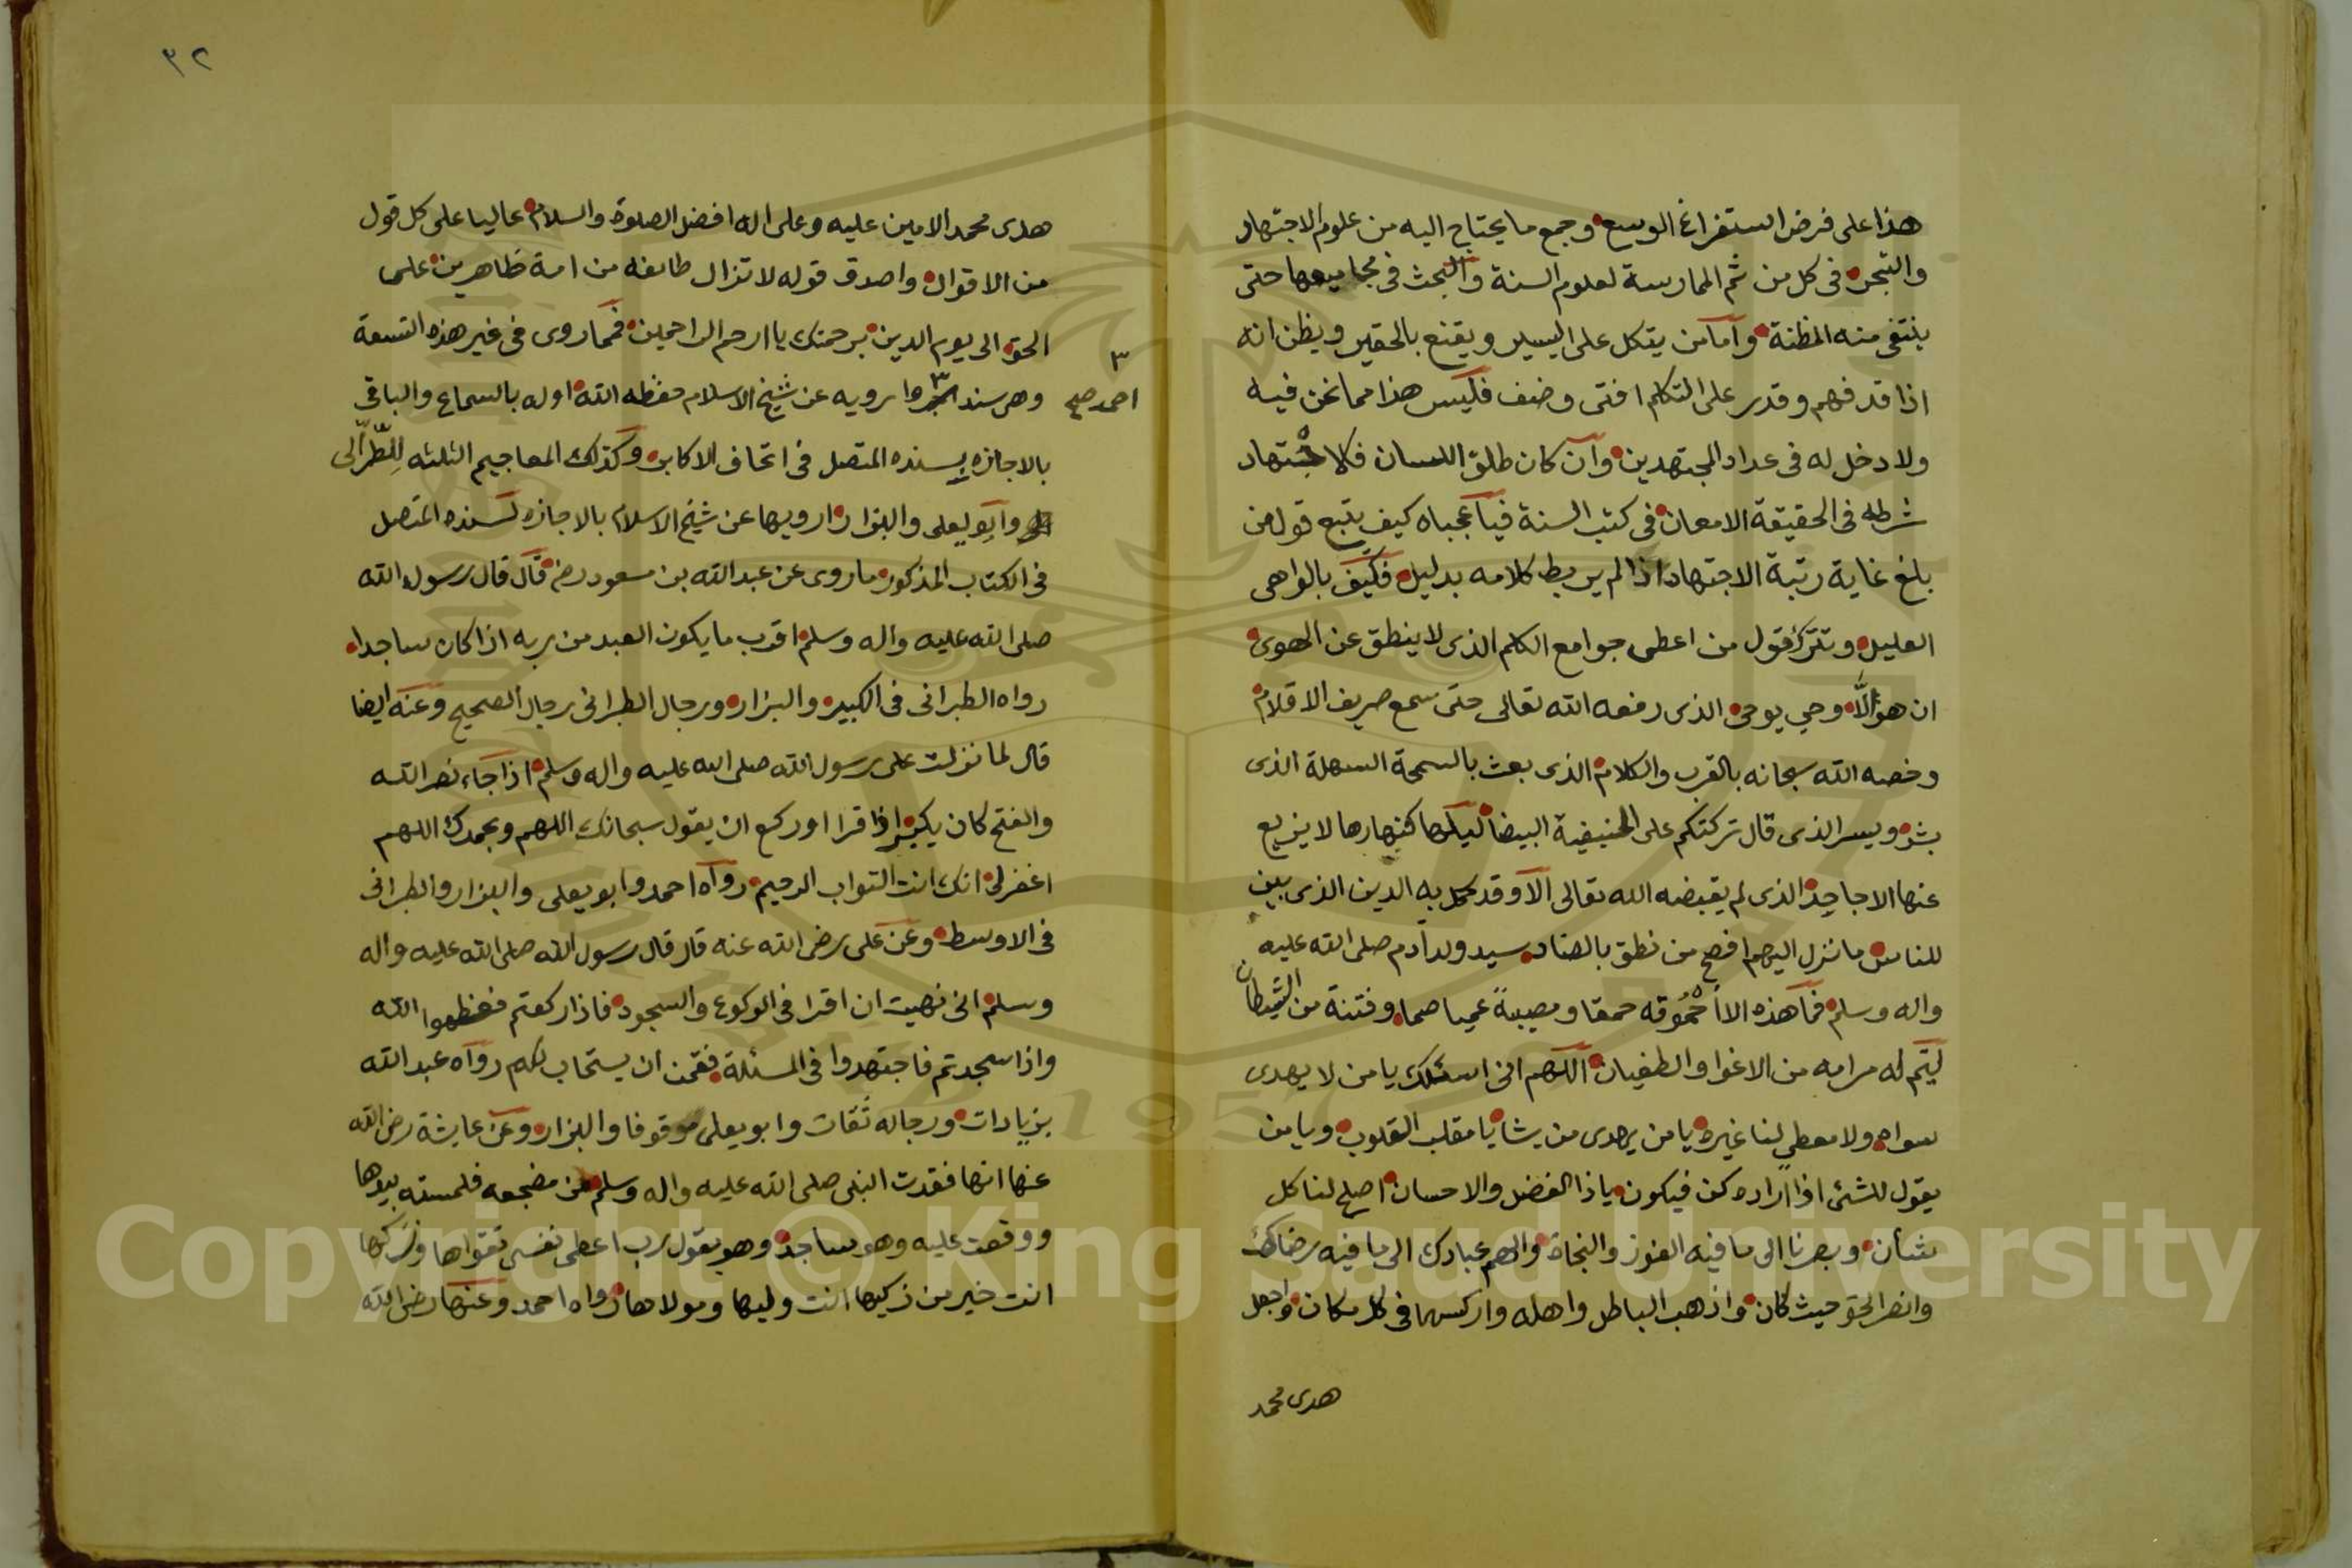 هذا على فرض استفراغ الوسع وجمع ما يحتاج اليه من علوم الاجتهاد
والتبحر في كل من ثم الممارسة لعلوم السنة والبحث في مجاميعها حتى
ينتفي منه المظنة واما من يتكل على اليسير ويقنع بالحقير ويظن انه
اذا قد فهم وقدر على التكلم افتى وصنف فليس هذا مما نحن فيه
ولا دخل له في عداد المجتهدين وان كان طلق اللسان فلاجتهاد
شرطه في الحقيقة الامعان في كتب السنة فيا عجباه كيف يتبع قول من
بلغ غاية رتبة الاجتهاد اذا لم يربط كلامه بدليل فكيف بالواهي
العليل وتترك قول من اعطى جوامع الكلم الذي لا ينطق عن الهوى
ان هو الا وحي يوحى الذي رفعه الله تعالى حتى سمع صريف الاقلام
وخصه الله سبحانه بالقرب والكلام الذي بعث بالسمحة السهلة الذي
بشر ويسر الذي قال تركتكم على الحنيفية البيضا ليلها كنهارها لا يزيع
عنها الا جاحد الذي لم يقبضه الله تعالى الا وقد كمل به الدين الذي بين
للناس ما نزل اليهم افصح من نطق بالضاد سيد ولد آدم صلى الله عليه
واله وسلم فما هذه الا احموقه حمقا ومصيبة عميا صما وفتنة من الشيطان
ليتم له مرامه من الاغوا والطغيان اللهم اني اسئلك يا من لا يهدى
سواه ولا معطي لنا غيره يا من يهدى من يشا يا مقلب القلوب ويا من
يقول للشئ اذا اراده كن فيكون يا ذا الفضل والاحسان اصلح لنا كل
شأن وبصرنا الى ما فيه الفوز والنجاة والهم عبادك الى ما فيه رضاك
وانصر الحق حيث كان واذهب الباطل واهله واركسها في كل مكان واجعل
هدى محمد
٣٢
هدى محمد الامين عليه وعلى اله افضل الصلوة والسلام عاليا على كل قول
من الاقوال واصدق قوله لا تزال طائفه من امة ظاهرين على
الحق الى يوم الدين برحمتك يا ارحم الراحمين فمما روى في غير هذه التسعة
٣
احمد صح
وهي سند وا رويه عن شيخ الاسلام حفظه الله اوله بالسماع والباقي
بالاجازه بسنده المتصل في اتحاف الاكابر وكذلك المعاجيم الثلثه للطبراني
وابو يعلى والبزار ارويها عن شيخ الاسلام بالاجازه لسنده المتصل
في الكتاب المذكور ما روى عن عبد الله بن مسعود رضي قال قال رسول الله
صلى الله عليه واله وسلم اقرب ما يكون العبد من ربه اذا كان ساجدا
رواه الطبراني في الكبير والبزار ورجال الطبراني رجال الصحيح وعنه ايضا
قال لما نزلت على رسول الله صلى الله عليه واله وسلم اذا جاء نصر الله
والفتح كان يكثر اذا قرا او ركع ان يقول سبحانك اللهم وبحمدك اللهم
اغفر لي انك انت التواب الرحيم رواه احمد وابو يعلى والبزار والطبراني
في الاوسط وعن على رضي الله عنه قال قال رسول الله صلى الله عليه واله
وسلم اني نهيت ان اقرا في الركوع والسجود فاذا ركعتم فعظموا الله
واذا سجدتم فاجتهدوا في المسئلة فقمن ان يستجاب لكم رواه عبد الله
بزيادات ورجاله ثقات وابو يعلى موقوفا والبزار وعن عايشة رضي الله
عنها انها فقدت النبي صلى الله عليه واله وسلم من مضجعه فلمسته بيدها
ووقعت عليه وهو ساجد وهو يقول رب اعطى نفسي تقواها وزكها
انت خير من زكيها انت وليها ومولاها رواه احمد وعنها رضي الله
Copyright © King Saud University
1957